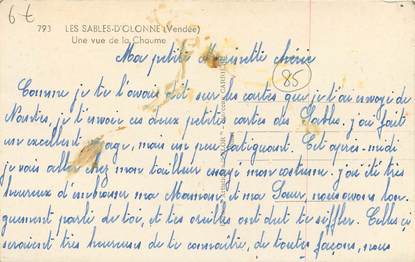 6 €
793 LES SABLES-D'OLONNE (Vendée)
Une vue de la Chaume
Ma petite Minette chérie
85
Comme je te l'avais dit sur les cartes que je t'ai envoyé de
Nantes, je t'envoie ces deux petites cartes des Sables. j'ai fait
un excellent voyage, mais un peu fatiguant. Cet après-midi
je vais aller chez mon tailleur essayé mon costume. j'ai été très
heureux d'embrasser ma Maman, et ma Sœur, nous avons lon-
guement parlé de toi, et tes oreilles ont du te siffler. Celles ci
seraient très heureuses de te connaître, de toutes façons, nous